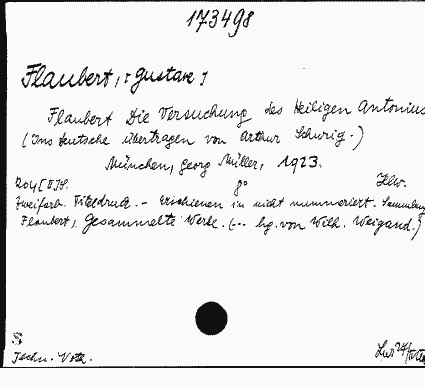 173498
Flaubert, [Gustave]
Flaubert Die Versuchung des Heiligen Antonius
(Ins Deutsche übertragen von Arthur Schurig.)
München, Georg Müller, 1923.
8° Hlw.
Zweifarb. Titeldruck. - Erschienen in nicht nummeriert. Sammlung
Flaubert, Gesammelte Werke. (... hg. von Wilh. Weigand.)
S
Techn. Votr.